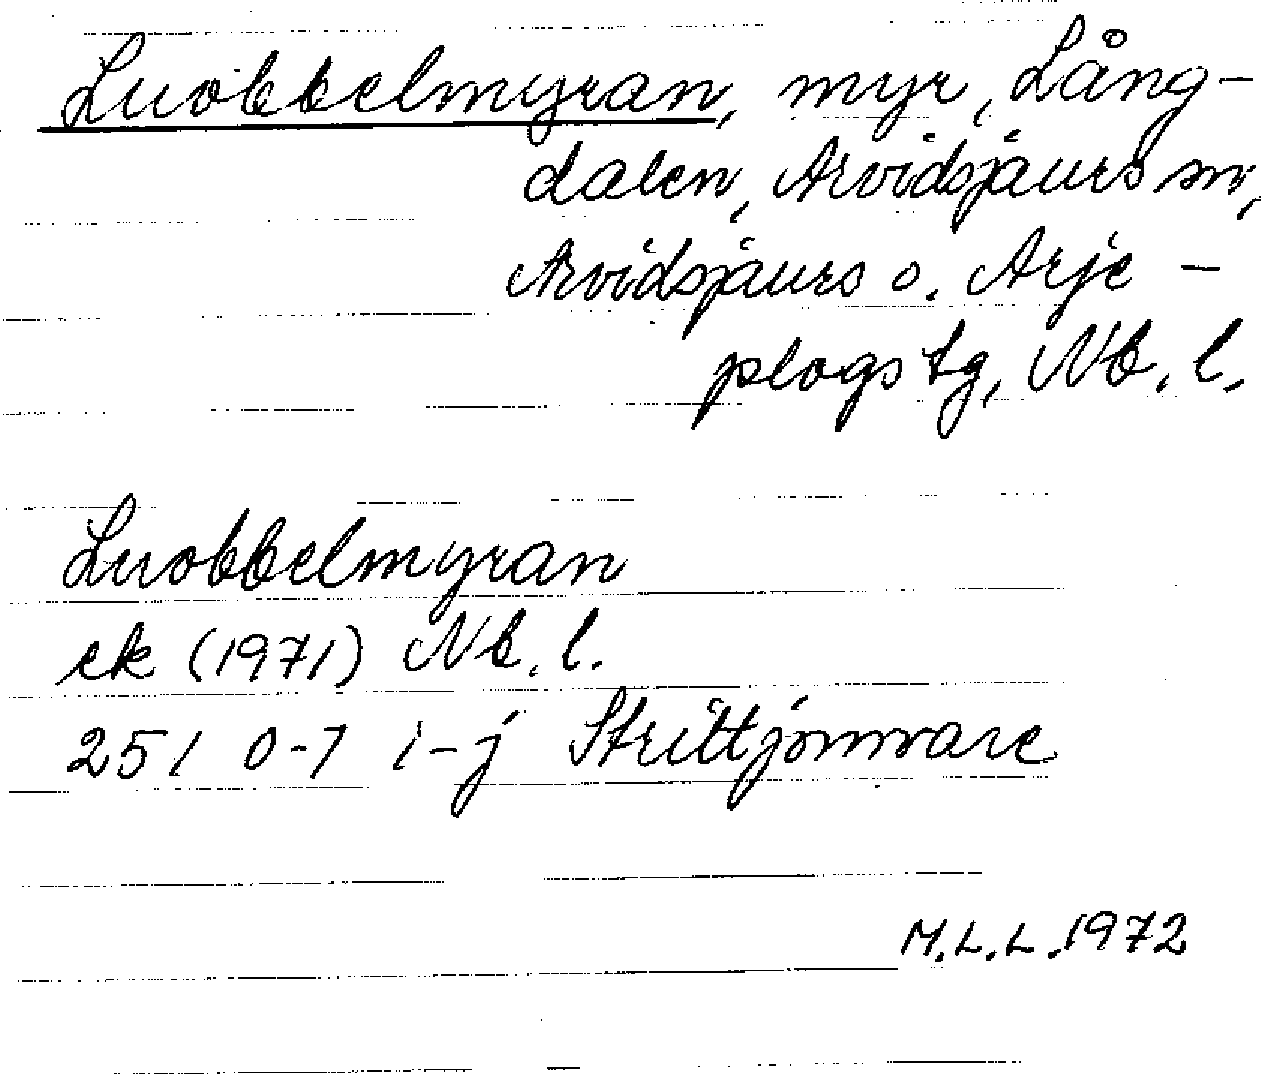 Luobbelmyran, myr, Lång-
dalen, Arvidsjaurs sn,
Arvidsjaurs o. Arje-
plogs tg, Nb. l.
Luobbelmyran
ek (1971) Nb. l.
25 I 0-1 i-j Strittjomvare
M.L.L. 1972